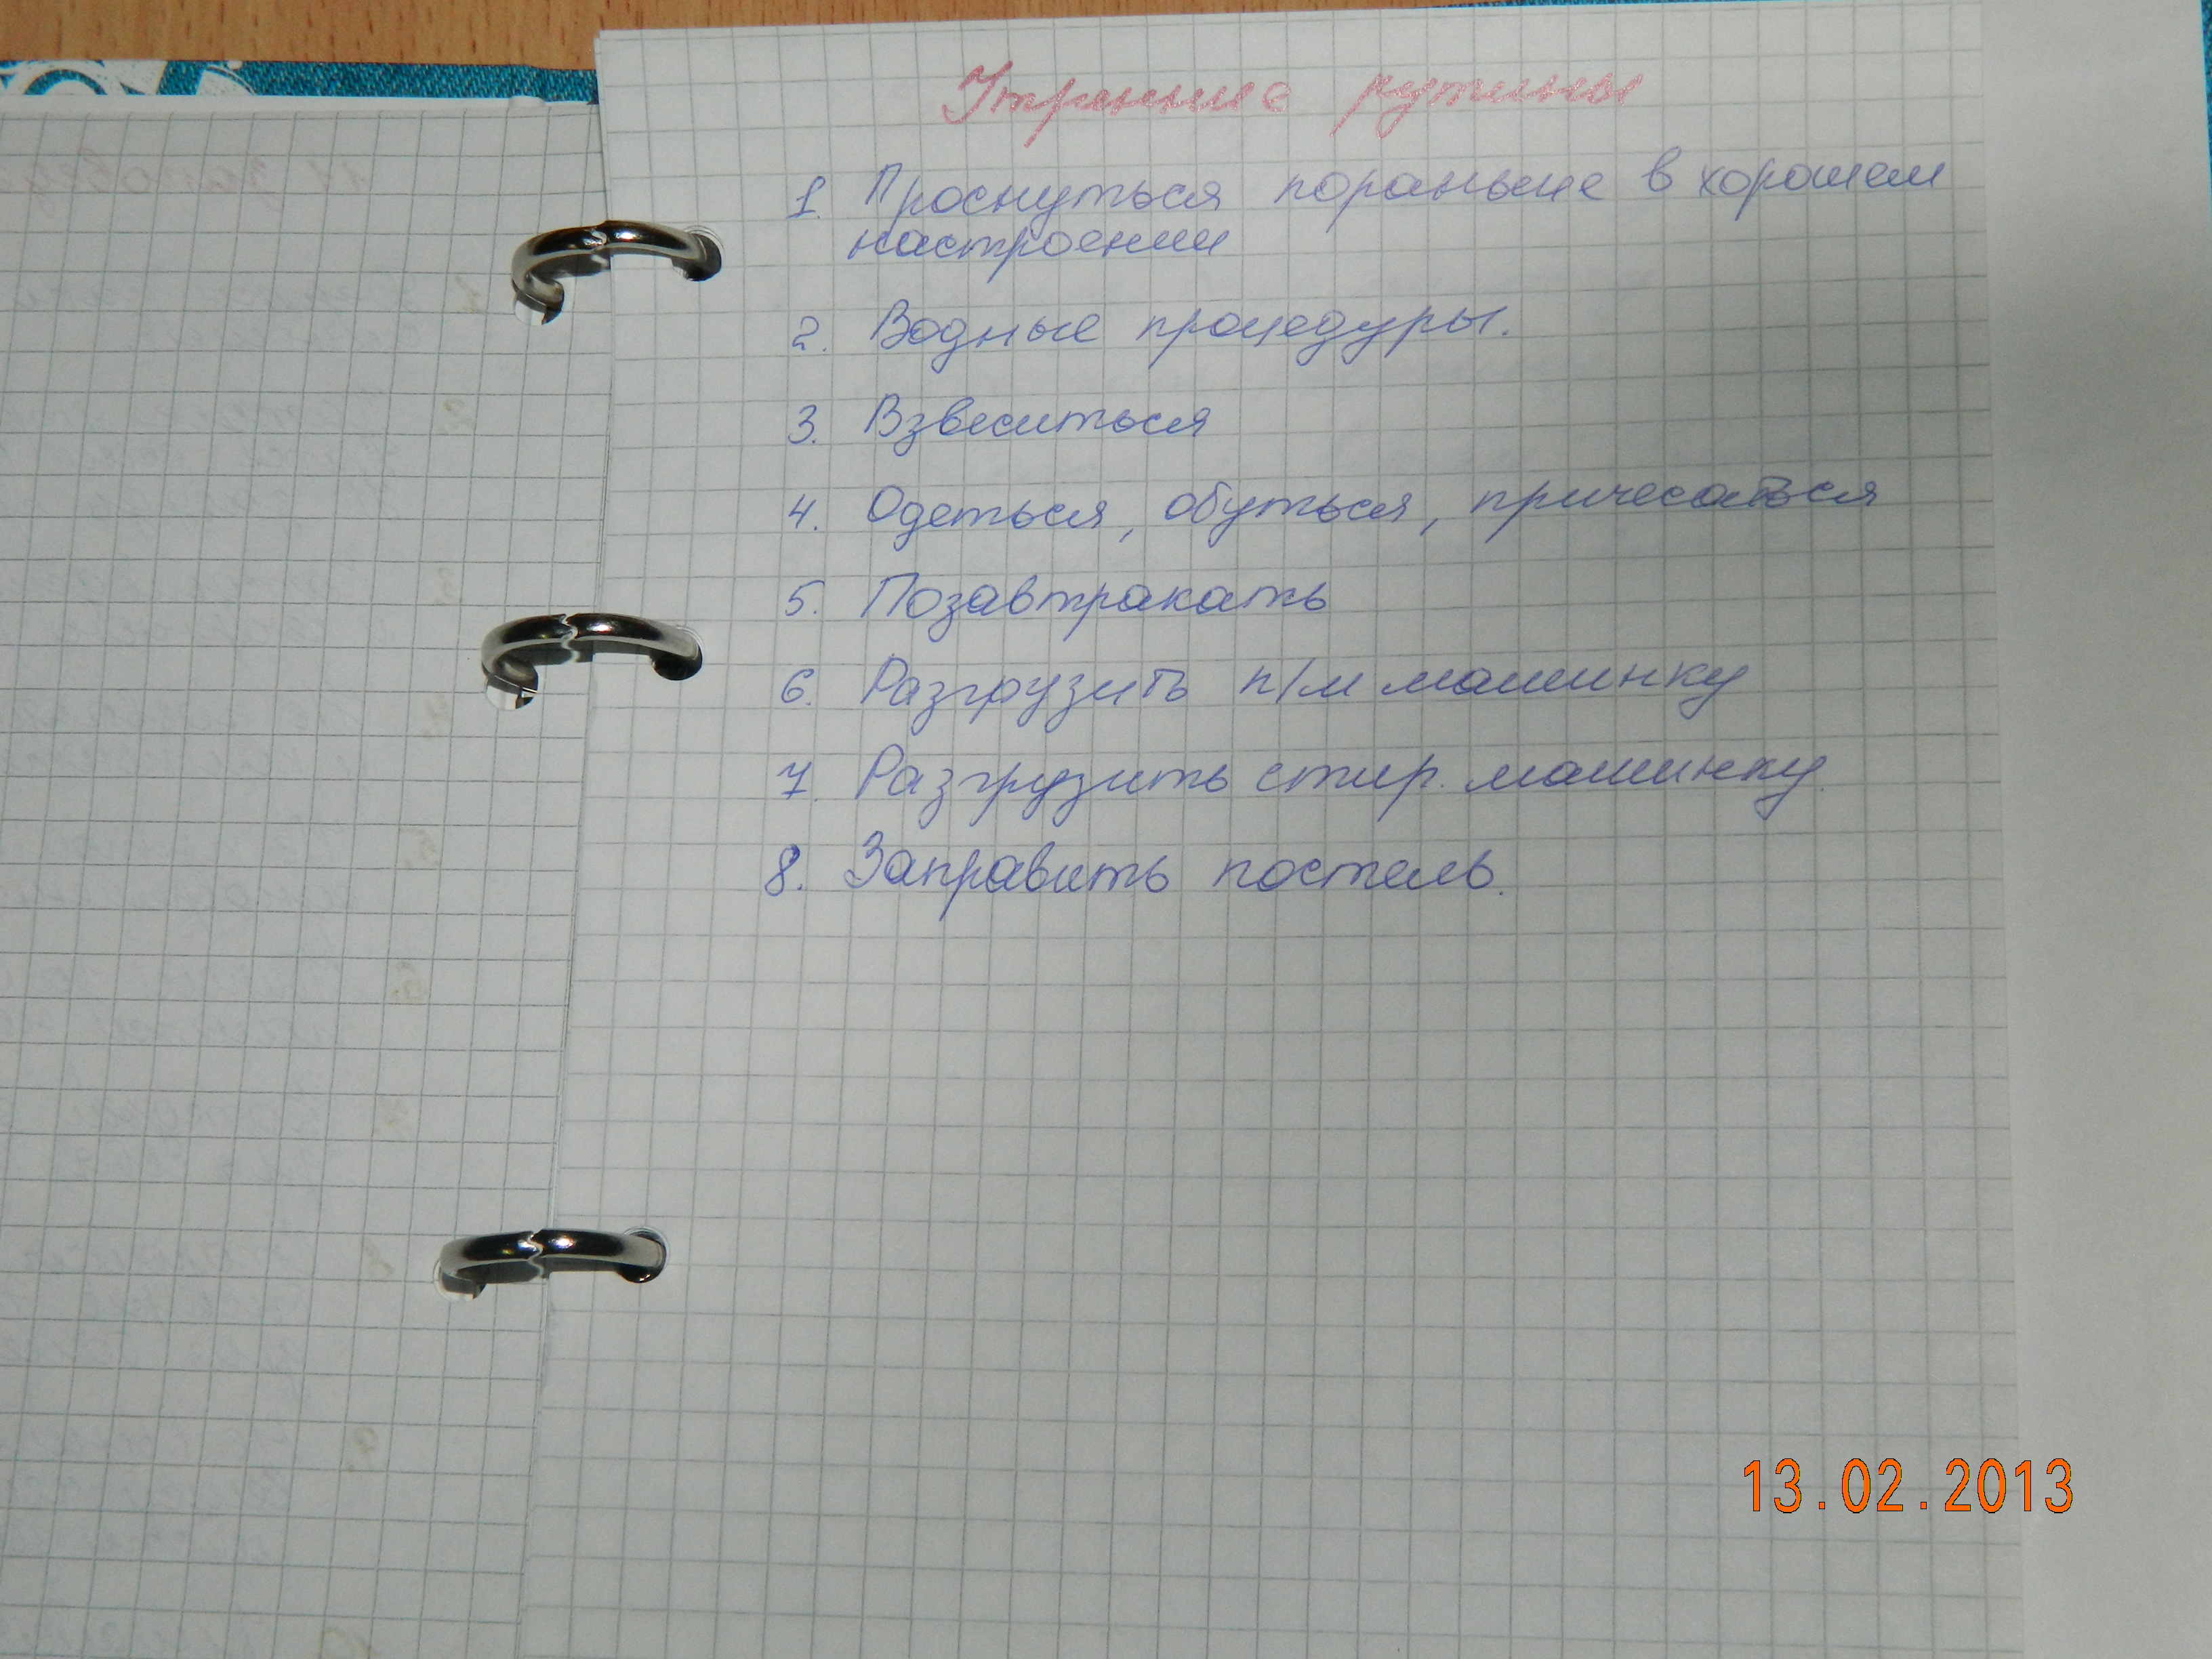 Утренние рутины
1. Проснуться пораньше в хорошем
настроении
2. Водные процедуры.
3. Взвеситься
4. Одеться, обуться, причесаться
5. Позавтракать
6. Разгрузить п/м машинку
7. Разгрузить стир. машинку.
8. Заправить постель.
13.02.2013